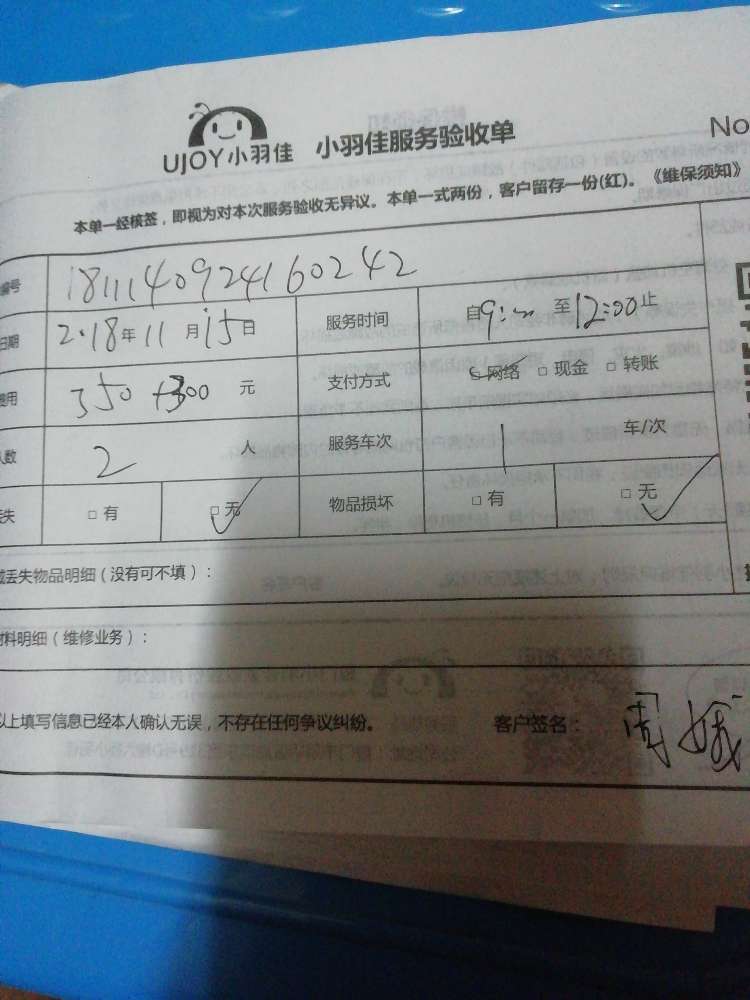 UJOY小羽佳 小羽佳服务验收单 No
本单一经核签，即视为对本次服务验收无异议。本单一式两份，客户留存一份(红)。《维保须知》
编号 1811140924160242
日期 2018年11月15日 服务时间 自9:00至12:00止
费用 350+300元 支付方式 网络 □现金 □转账
人数 2人 服务车次 1车/次
丢失 □有 □无 物品损坏 □有 □无
或丢失物品明细（没有可不填）：
材料明细（维修业务）：
以上填写信息已经本人确认无误，不存在任何争议纠纷。 客户签名：周娥